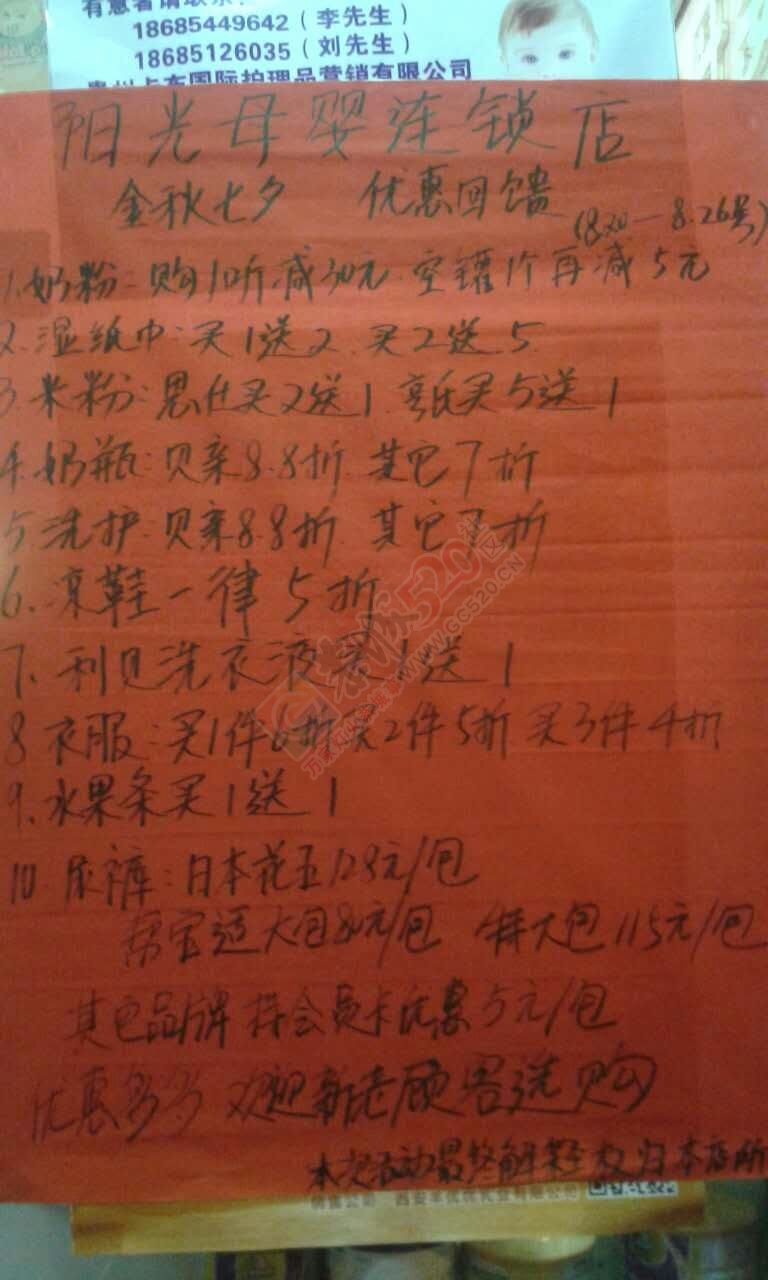 18685449642（李先生）
18685126035（刘先生）
贵州卡布国际护理品营销有限公司
阳光母婴连锁店
金秋七夕 优惠回馈
(8.20—8.26号)
1.奶粉:购1听减30元.空罐1个再减5元
2.湿纸巾:买1送2.买2送5
3.米粉:买2送1 亨氏买5送1
4.奶瓶:贝亲8.8折.其它7折
5.洗护:贝亲8.8折.其它7折
6.凉鞋一律5折
7.利贝洗衣液买1送1
8.衣服:买1件6折买2件5折 买3件4折
9.水果条买1送1
10.尿裤:日本花王128元/包
帮宝适大包80元/包 特大包115元/包
其它品牌持会员卡优惠5元/包
优惠多多 欢迎新老顾客选购
本次活动最终解释权归本店所
在线520社区
WWW.GC520.CN